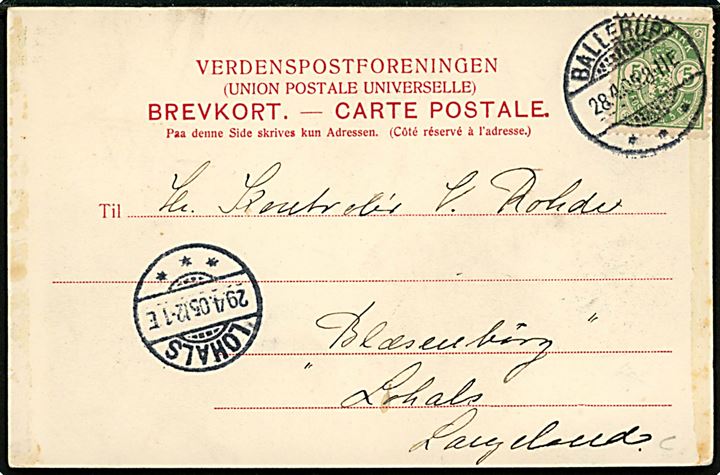 VERDENSPOSTFORENINGEN
(UNION POSTALE UNIVERSELLE)
BREVKORT. — CARTE POSTALE.
Paa denne Side skrives kun Adressen. (Côté réservé à l'adresse.)
BALLERUP
5 5
Til Hr. Kontrolør V. Rohde
29/4.05.12-1 E
LOHALS
"Blæsenborg"
Lohals
Langeland.